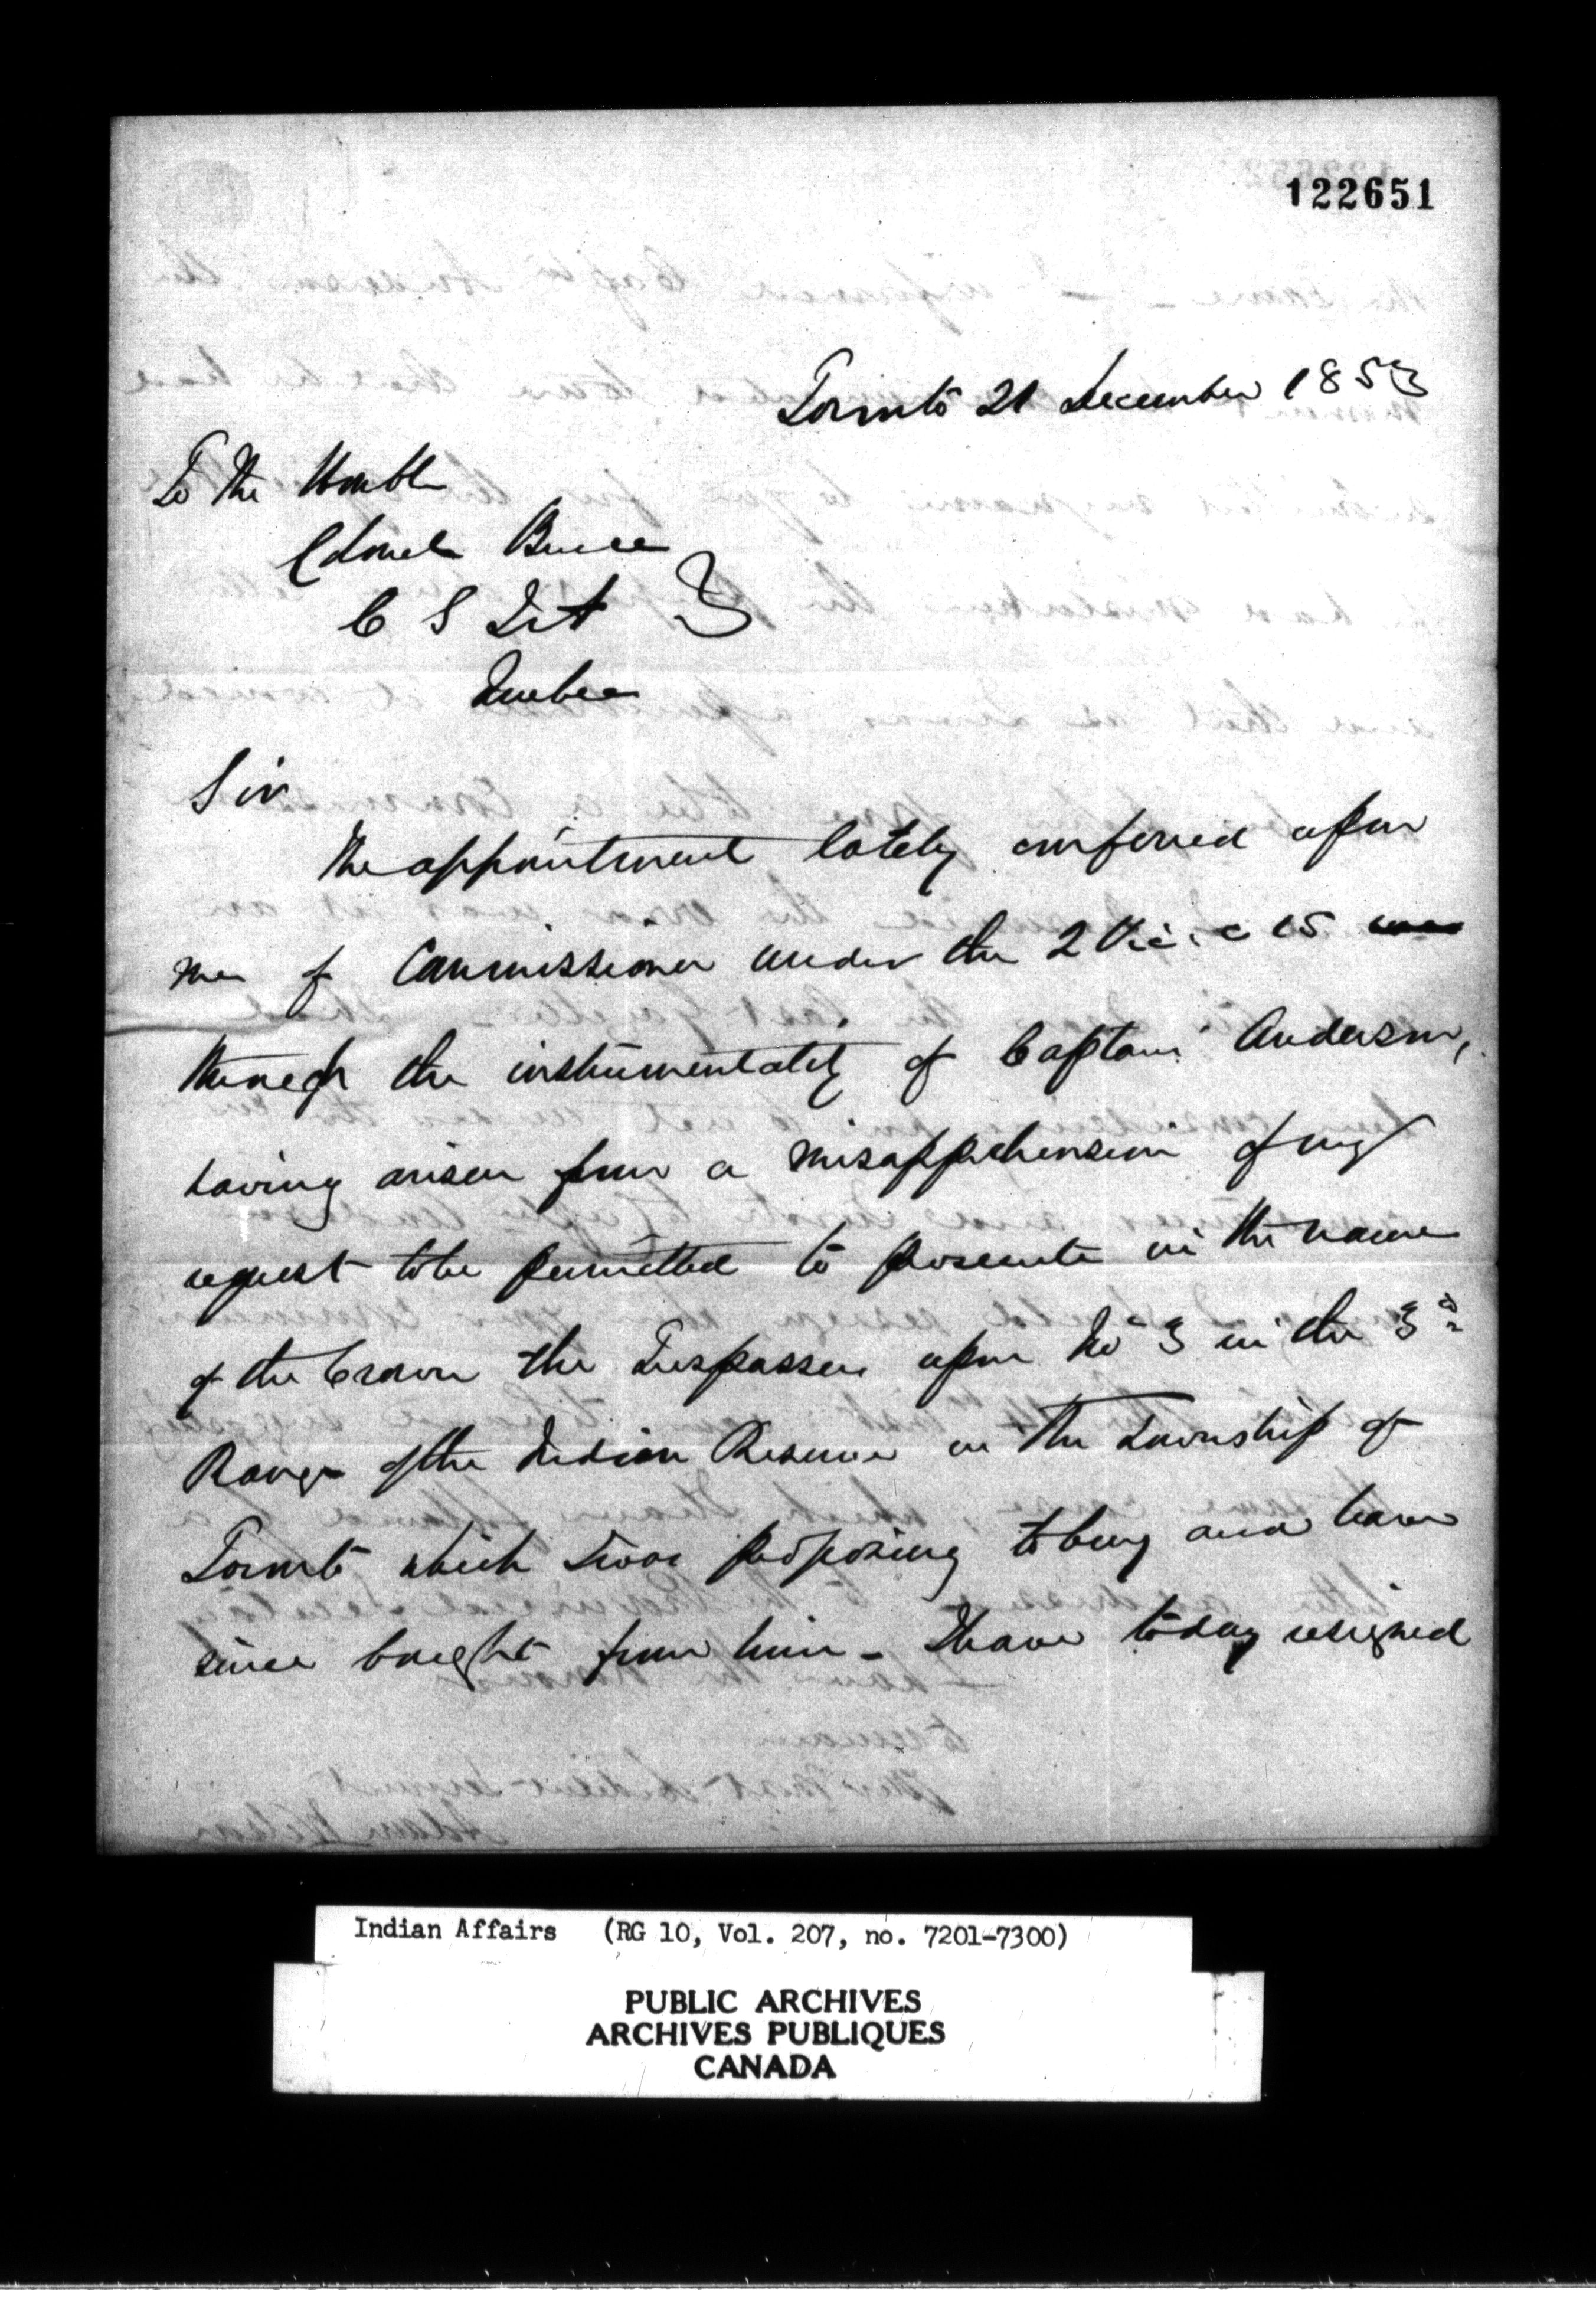 122651
Toronto 21 December 1853
To the Honble
Colonel Bruce
Quebec
Sir
The appointment lately conferred upon
me of Commissioner under the 2 Vic. c 15
through the instrumentality of Captain Anderson,
having arisen from a misapprehension of my
request to be permitted to prosecute in the name
of the Crown the Trespassers upon No 3 in the 3d
Range of the Indian Reserve in the Township of
Toronto which I was proposing to buy and have
since bought from him - I have today resigned
Indian Affairs (RG 10, Vol. 207, no. 7201-7300)
PUBLIC ARCHIVES
ARCHIVES PUBLIQUES
CANADA